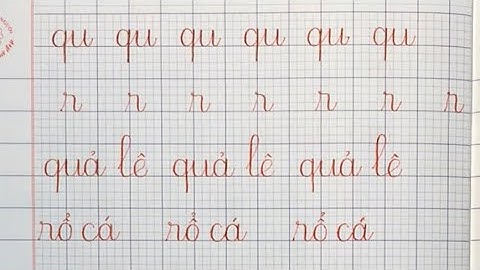 qu qu qu qu qu qu
r r r r r r r
quả lê quả lê quả lê
rổ cá rổ cá rổ cá